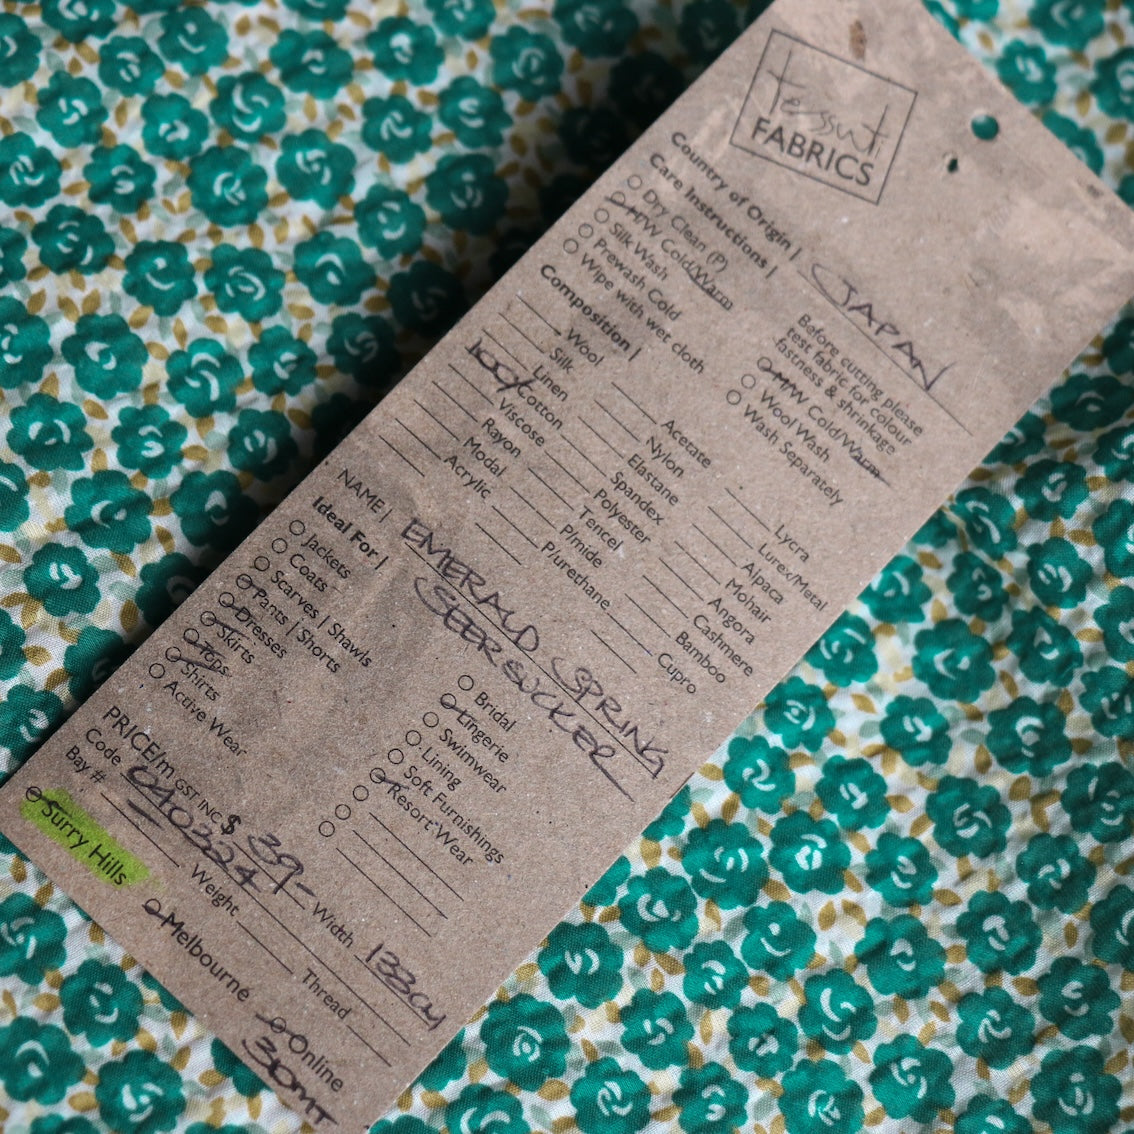 tessuti
FABRICS
Country of Origin | JAPAN
Care Instructions |
Dry Clean (P)
HW Cold/Warm
Silk Wash
Prewash Cold
Wipe with wet cloth
Before cutting please
test fabric for colour
fastness & shrinkage
MW Cold/Warm
Wool Wash
Wash Separately
Composition |
Wool
Silk
Linen
100% Cotton
Viscose
Rayon
Modal
Acrylic
Acetate
Nylon
Elastane
Spandex
Polyester
Tencel
P/mide
P/urethane
Lycra
Lurex/Metal
Alpaca
Mohair
Angora
Cashmere
Bamboo
Cupro
NAME | EMERALD SPRING
SEERSUCKER
Ideal For |
Jackets
Coats
Scarves | Shawls
Pants | Shorts
Dresses
Skirts
Tops
Shirts
Active Wear
Bridal
Lingerie
Swimwear
Lining
Soft Furnishings
Resort Wear
PRICE/m GST INC $ 39- Width 133cm
Code 040224 Weight Thread
Bay #
Surry Hills
Melbourne
Online
30MT